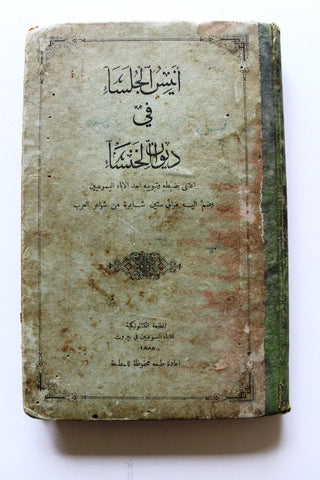 أنيس الجلساء
في
ديوان الخنساء
اعتنى بضبطه وتبويبه احد الآباء اليسوعيين
وضم اليه مراثي ستين شاعرة من شواعر العرب
المطبعة الكاثوليكية
للآباء اليسوعيين في بيروت
١٨٨٨
اعادة طبعه محفوظة للمطبعة